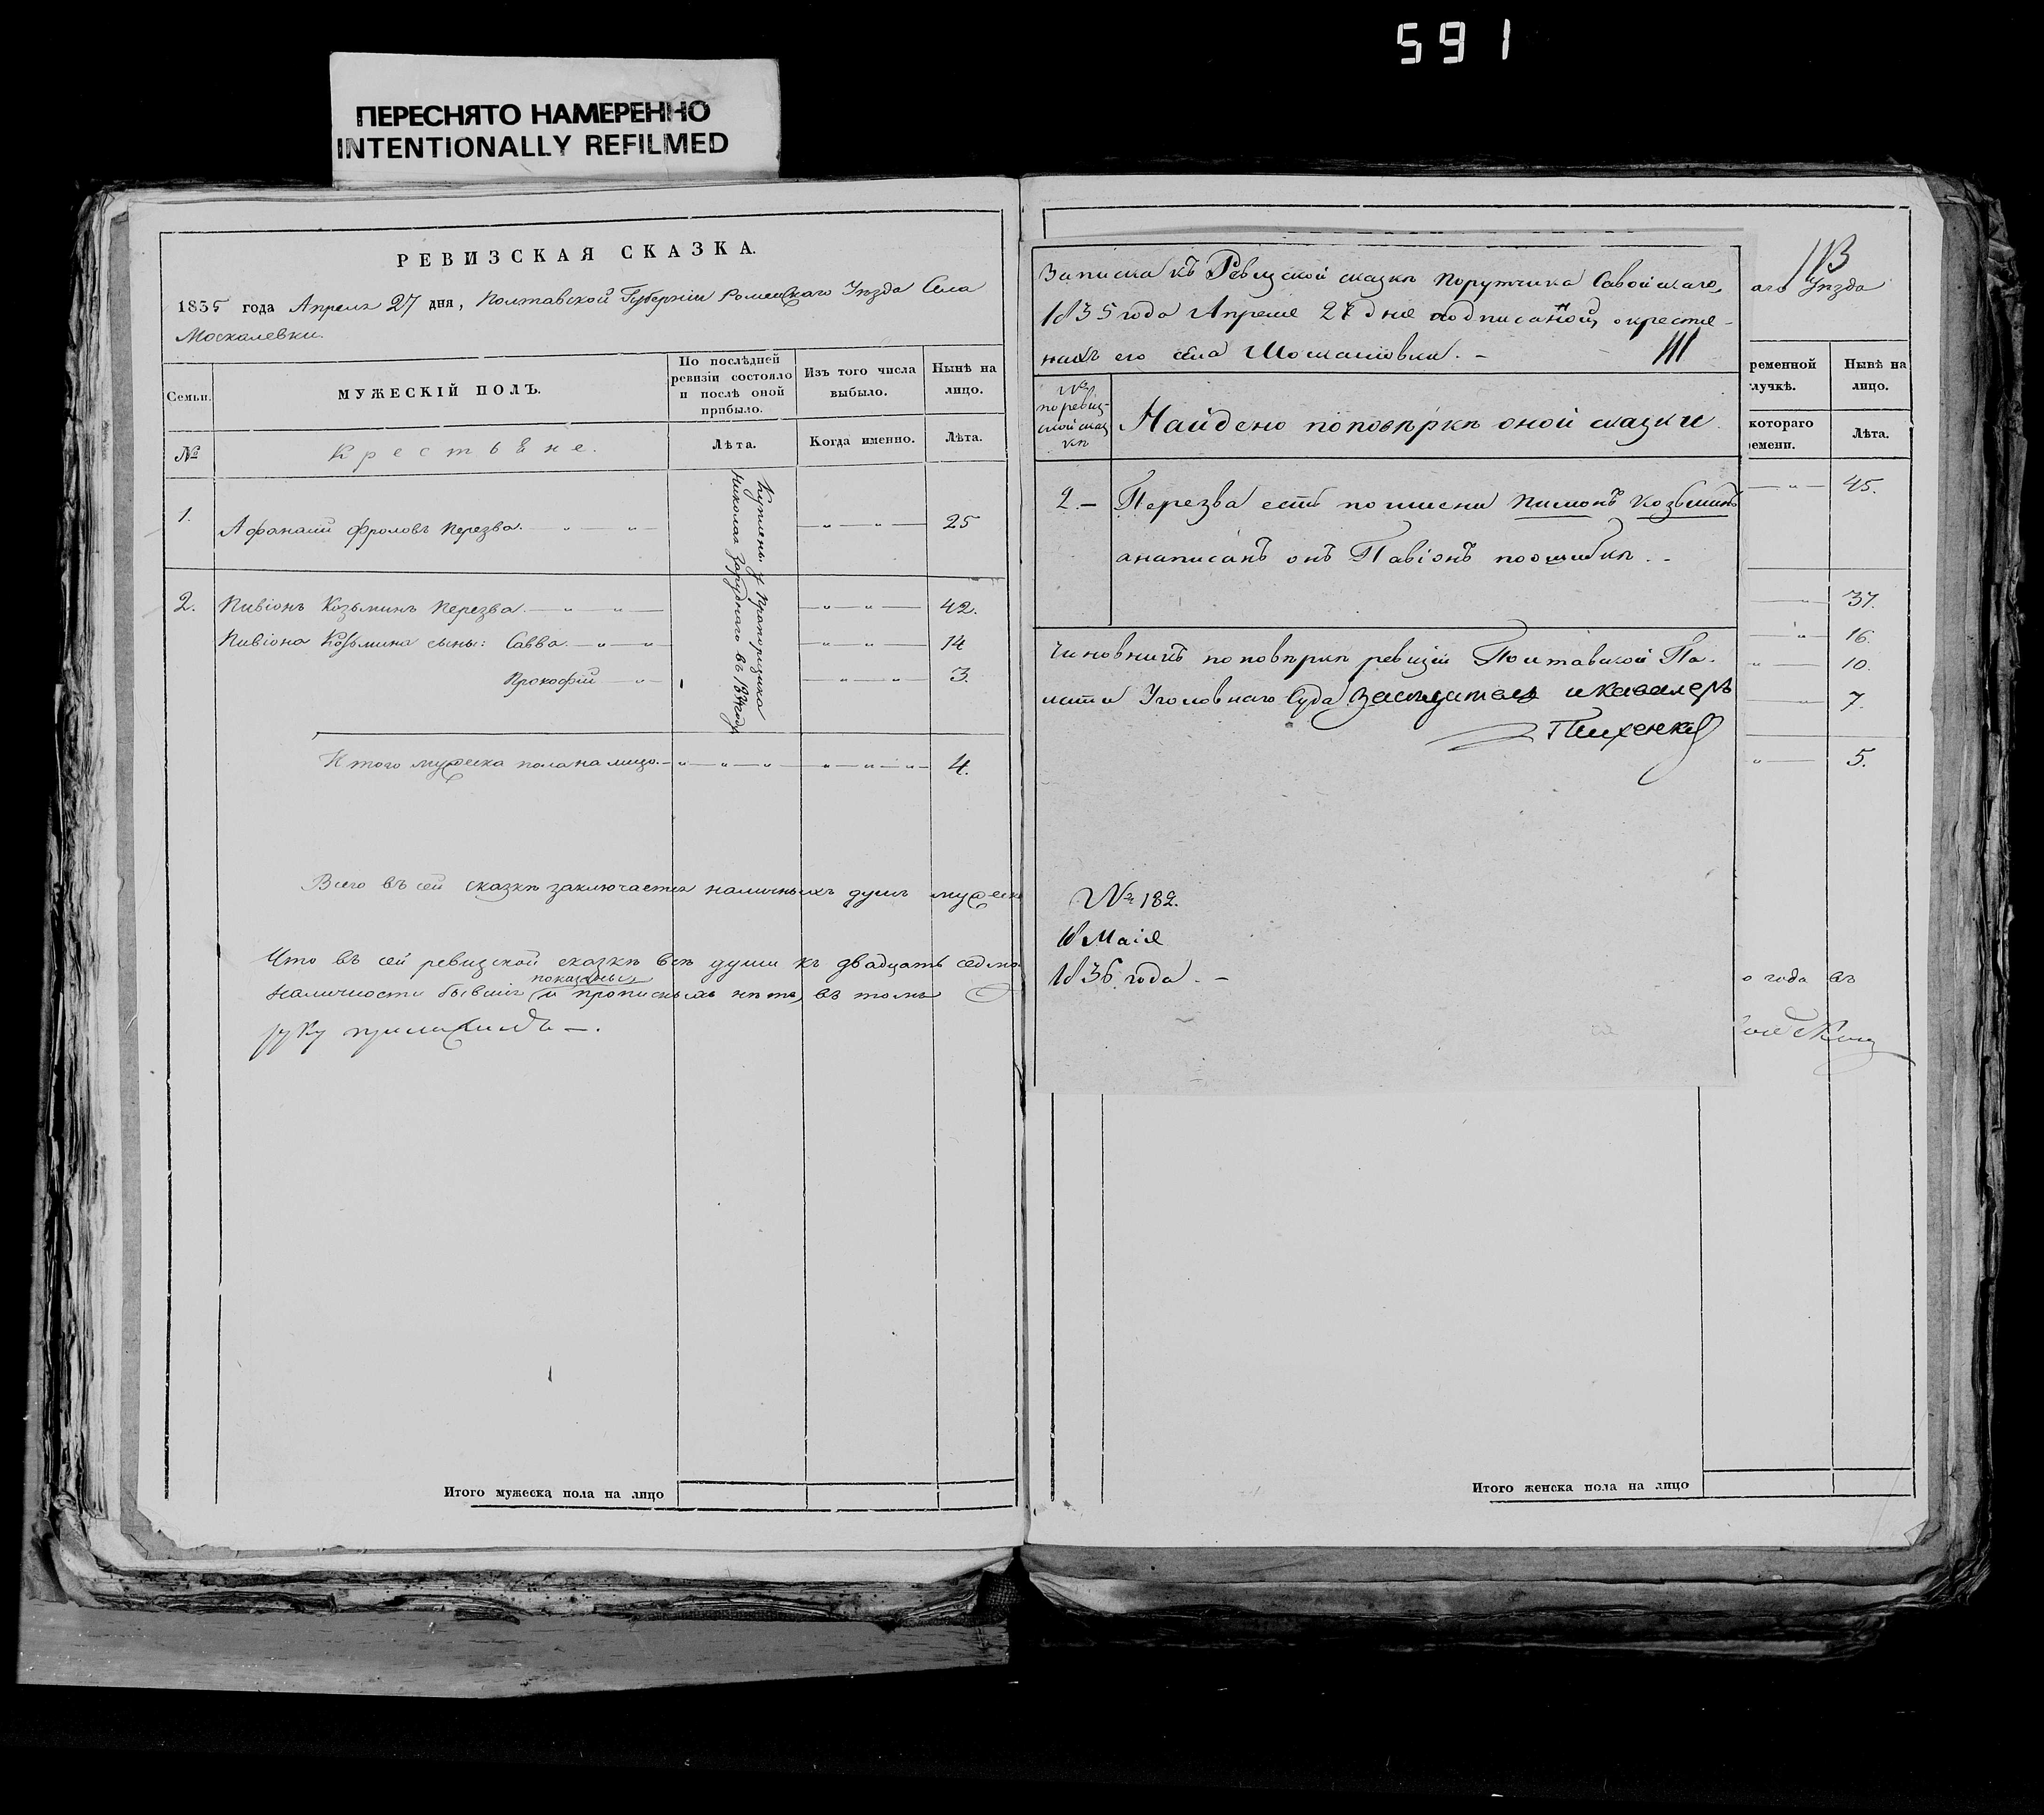 591
ПЕРЕСНЯТО НАМЕРЕННО
INTENTIONALLY REFILMED
РЕВИЗСКАЯ СКАЗКА.
1835 года Апреля 27 дня, Полтавской Губерніи Роменскаго Уѣзда Села
Москалевки.
Семьи.
МУЖЕСКІЙ ПОЛЪ.
По послѣдней ревизіи состояло и послѣ оной прибыло.
Изъ того числа выбыло.
Нынѣ на лицо.
№
Крестьяне.
Лѣта.
Когда именно.
Лѣта.
Куплены у Прапорщика
Николая Заруднаго въ 1834 году
1. Афанасій Фроловъ Перезва. — „ — „ — — „ — „ — 25
2. Пивіонъ Козьминъ Перезва. — „ — „ — — „ — „ — 42.
Пивіона Козьмина сыны: Савва. — „ — „ — „ — „ — 14
Прокофій — „ — — „ — „ — 3.
Итого мужеска пола на лицо. — „ — „ — „ — „ — „ — „ — 4.
Всего въ сей сказкѣ заключается наличныхъ душъ мужеск
Что въ сей ревизской сказкѣ всѣ души къ двадцать седмо
показаны
наличности бывшіе и прописныхъ нѣтъ, въ томъ
руку приложилъ —.
Итого мужеска пола на лицо
113
аго Уѣзда
Записка къ Ревизской сказкѣ Порутчика Савойскаго,
1835 года Апреля 27 дня подписанной, о крестья-
нахъ его села Москалювки. — 111
№ по ревиз-
ской сказ
кѣ
Найдено по повѣркѣ оной сказки
2. — Перезва есть по имени Пимонъ Козьминъ
а написанъ онъ Павіонъ по ошибкѣ. —
Чиновникъ по повѣркѣ ревизіи Полтавской Па-
латы Уголовнаго Суда Засѣдатель и кавалеръ
№ 182.
18 Маія
1836 года. —
ременной
лучкѣ.
Нынѣ на
лицо.
котораго
емени.
Лѣта.
— „ — 45.
— „ — 37.
— „ — 16.
„ — 10.
— „ — 7.
„ — 5.
о года въ
Итого женска пола на лицо